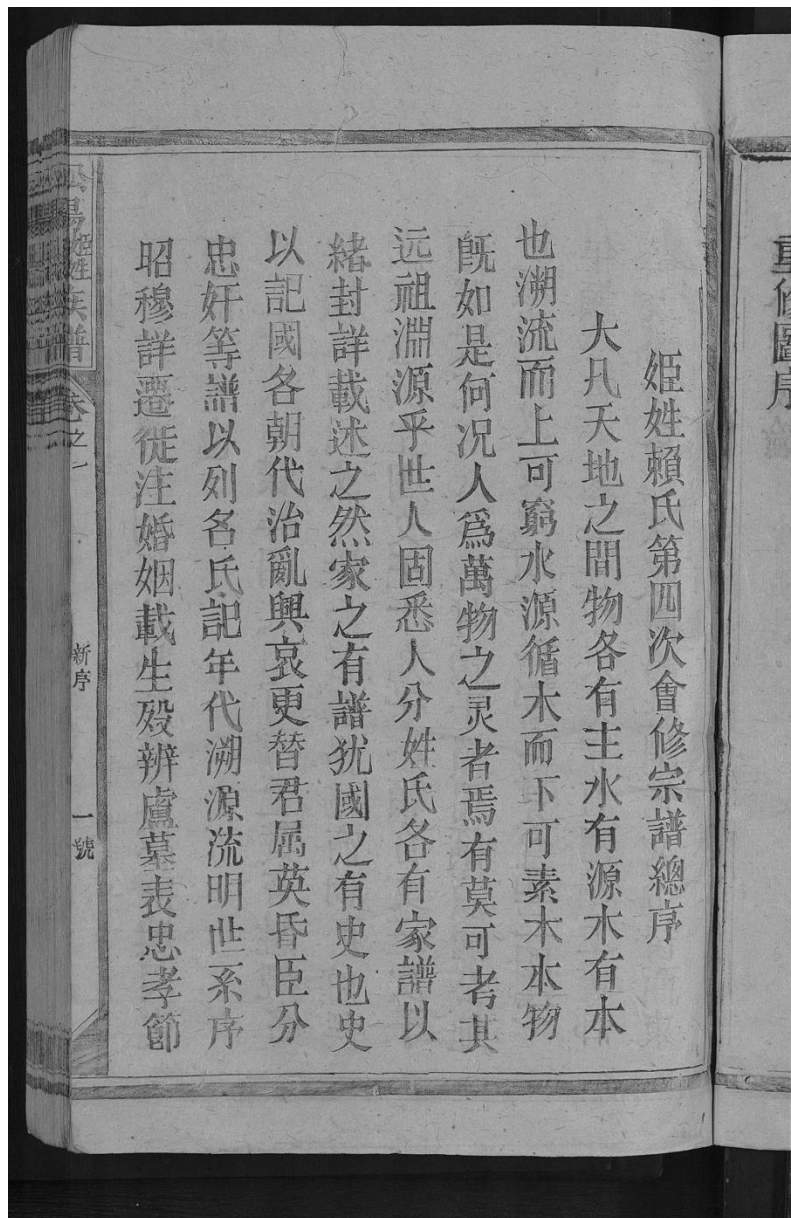 重修圖序
姬姓賴氏第四次會修宗譜總序
大凡天地之間物各有主水有源木有本
也溯流而上可窮水源循木而下可素木本物
既如是何况人為萬物之灵者焉有莫可考其
远祖淵源乎世人固悉人分姓氏各有家譜以
緒封詳載述之然家之有譜犹國之有史也史
以記國各朝代治亂興哀更替君属英昏臣分
忠奸等譜以列名氏記年代溯源流明世系序
昭穆詳遷徙注婚姻載生殁辨廬墓表忠孝節
陽姬姓族譜
卷之一
新序
一號